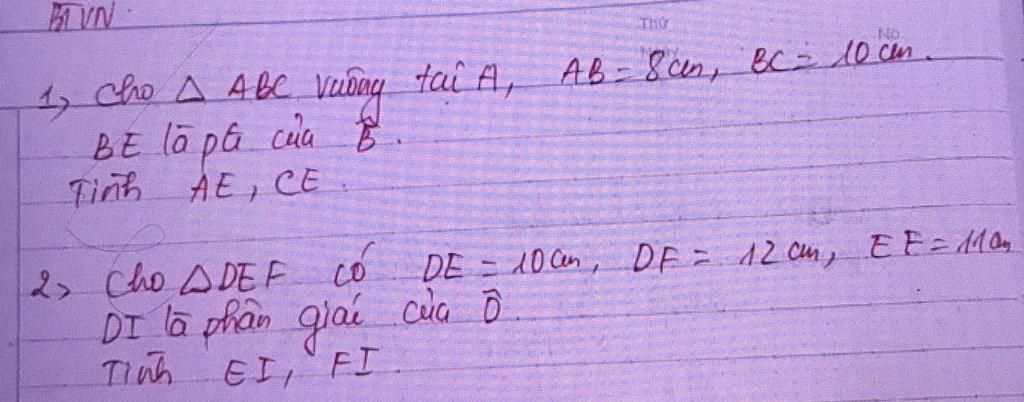 BTVN.
Thứ
No
1, Cho Δ ABC vuông tại A, AB = 8cm, BC = 10 cm.
BE là pG của B̂.
Tính AE, CE.
2, Cho Δ DEF có DE = 10cm, DF = 12 cm, EF = 11cm
DI là phân giác của D̂.
Tính EI, FI.